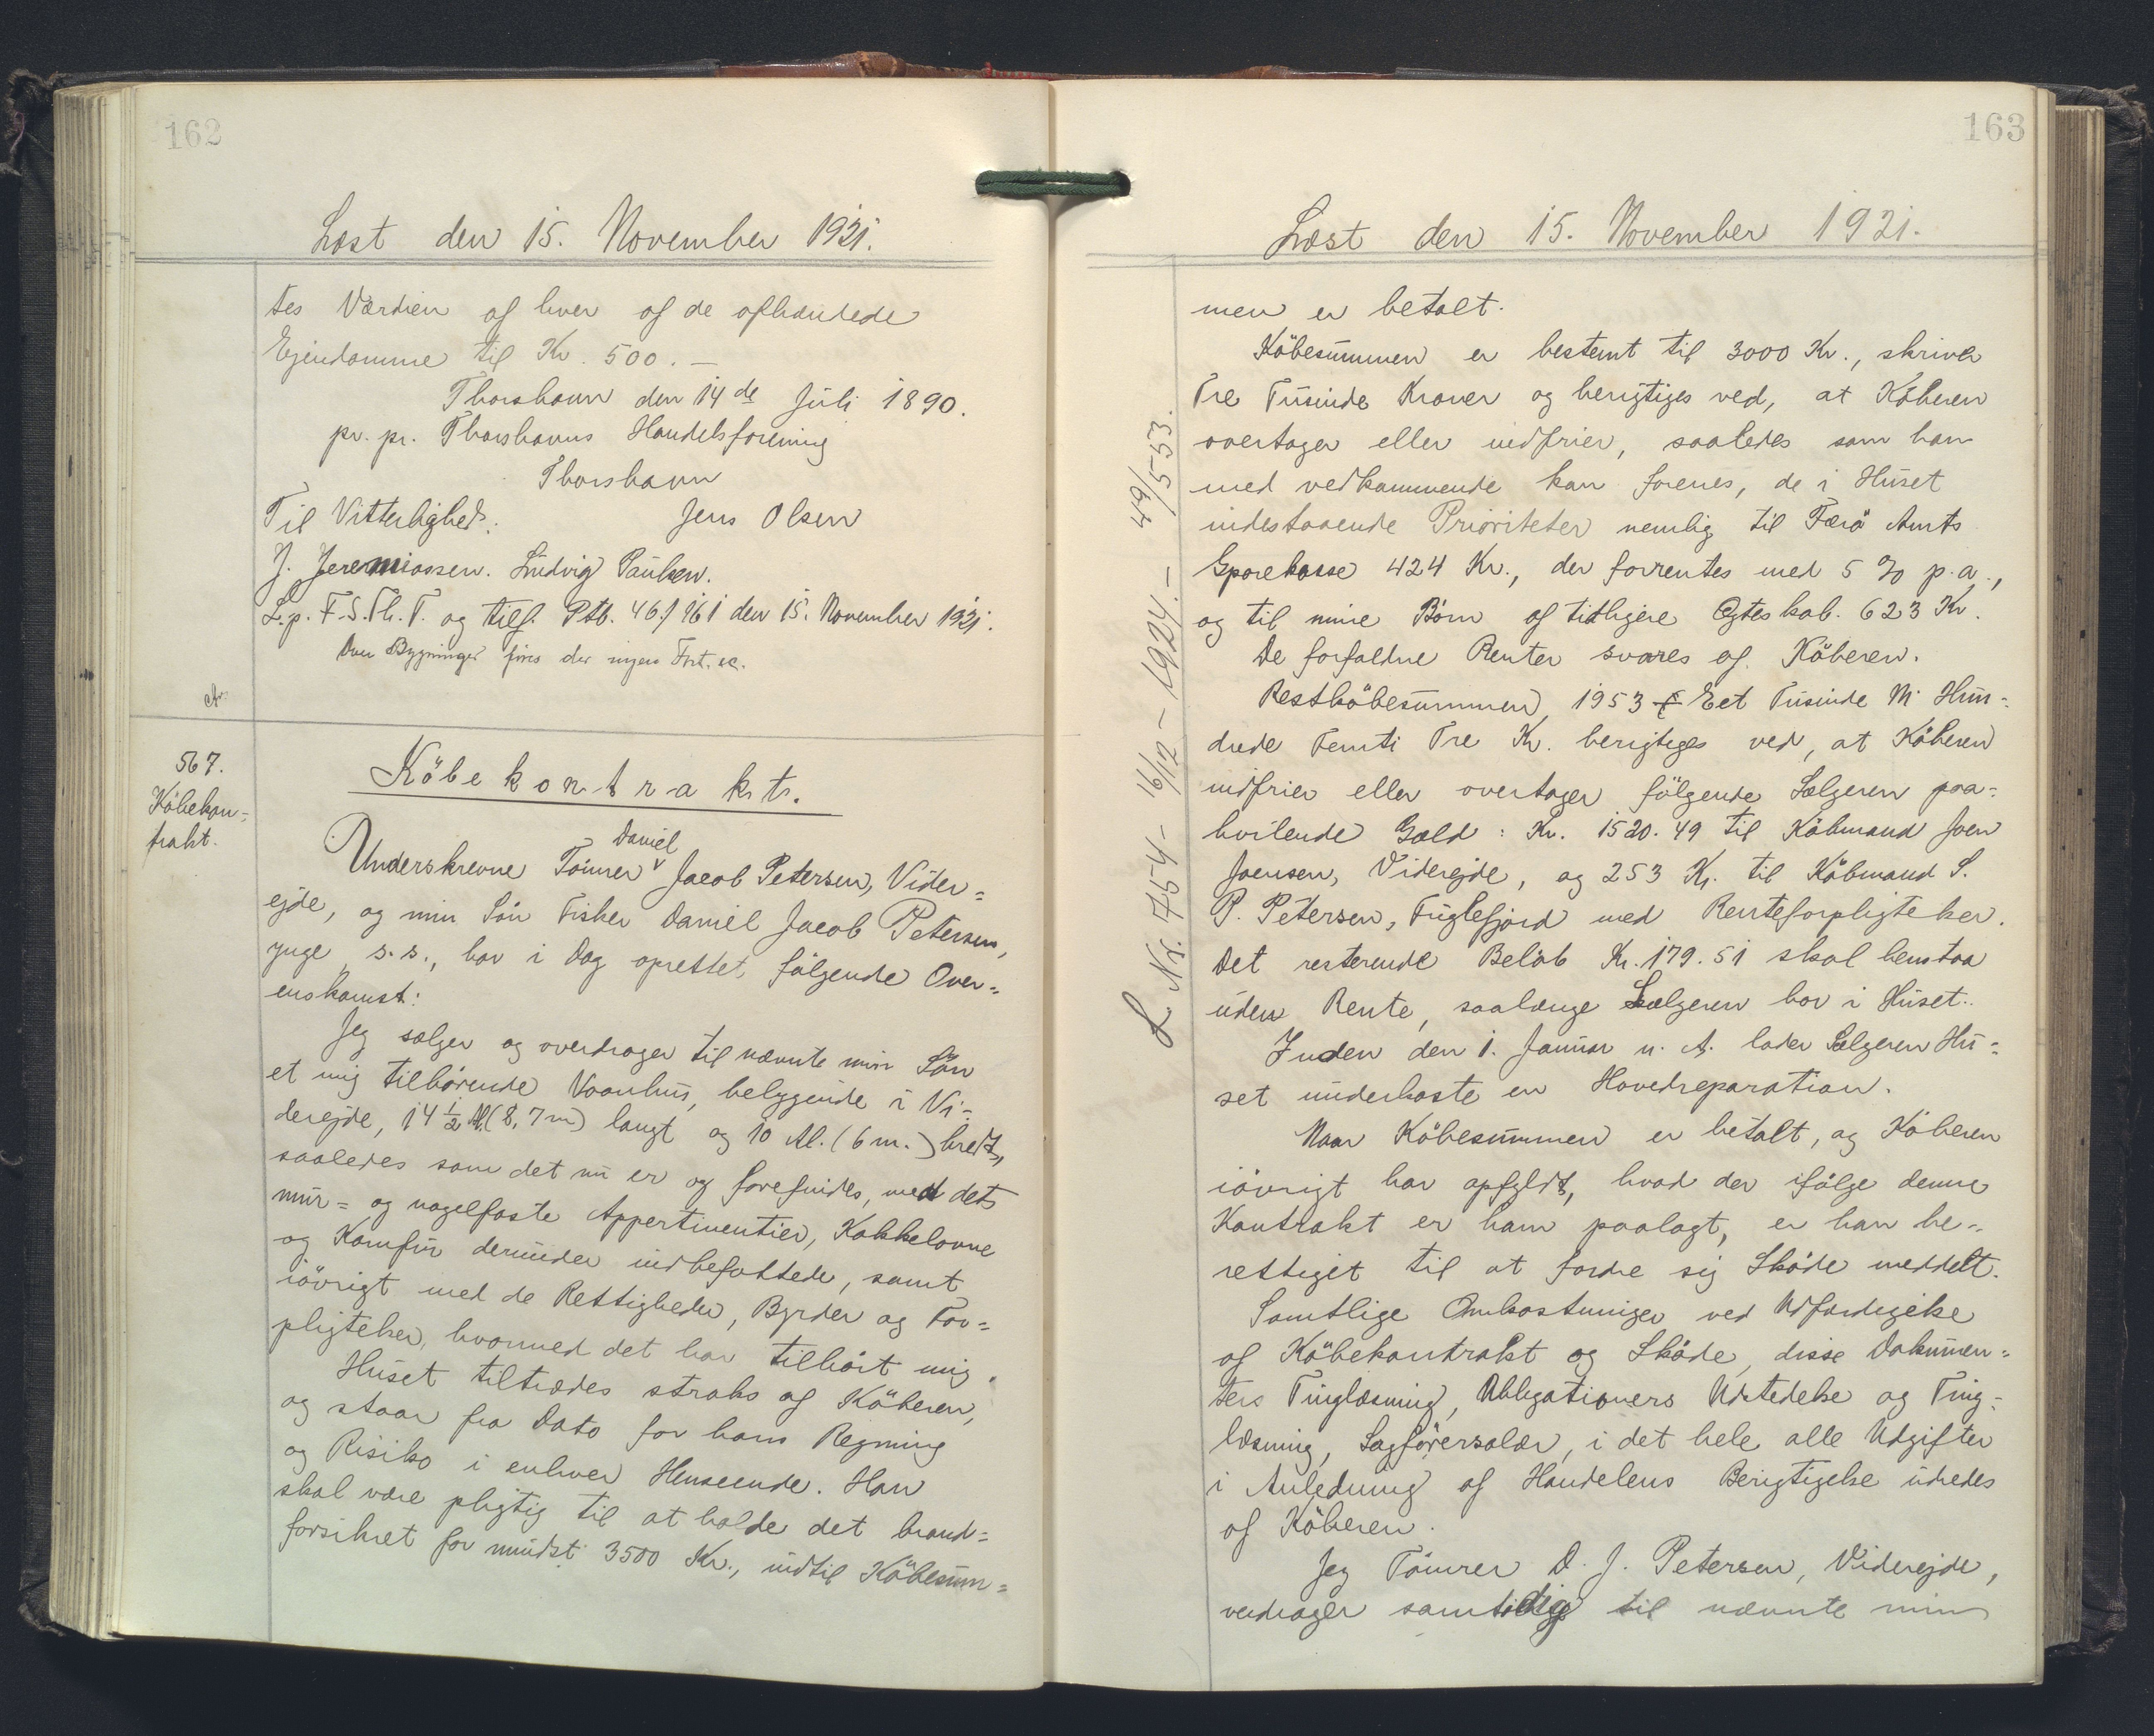 162
Læst den 15. November 1921.
tes Værdien af hver af de afhændede
Ejendomme til Kr. 500.-
Thorshavn den 14de Juli 1890.
pr. pr. Thorshavns Handelsforening
Thorshavn
Til Vitterlighed: Jens Olsen
J. Jeremiassen. Ludvig Paulsen.
L. p. F. S. Th. T. og tilf. Ptb. 46/161 den 15. November 1921.
Over Bygninger føres der ingen Fort. ec.
567.
Købekon=
trakt.
Köbekontrakt.
Daniel
Underskrevne Tömrer v Jacob Petersen, Vider=
ejde, og min Sön Fisker Daniel Jacob Petersen,
ynge, s. s., har i Dag oprettet følgende Over=
enskomst:
Jeg sælger og overdrager til nævnte min Sön
et mig tilhörende Vaanhus, belyggende i Vi=
derejde, 14 1/2 Al. (8,7 m) langt og 10 Al. (6 m.) bredt,
saaledes som det nu er og forefindes, med dets
mur= og nagelfaste Appertinentier, Kakkelovne
og Komfur derunder indbefattede, samt
iövrigt med de Rettigheder, Byrder og For=
pligtelser, hvormed det har tilhört mig.
Huset tiltrædes straks af Köberen,
og staar fra Dato for hans Regning
og Risiko i enhver Henseende. Han
skal være pligtig til at holde det brand=
forsikret for mindst 3500 Kr., indtil Köbesum=
163
Læst den 15. November 1921.
L. Nr. 754 - 16/12 - 1924. - 49/553.
men er betalt.
Köbesummen er bestemt til 3000 Kr., skriver
Tre Tusinde Kroner og berigtiges ved, at Köberen
overtager eller indfrier, saaledes som han
med vedkommende kan forenes, de i Huset
indestaaende Prioriteter nemlig til Færö Amts
Sparekasse 424 Kr., der forrentes med 5 % p. a.,
og til mine Börn af tidligere Ægteskab. 623 Kr.
De forfaldne Renter svares af Köberen.
Restköbesummen 1953 Eet Tusinde Ni Hun=
drede Femti Tre Kr. berigtiges ved, at Köberen
indfrier eller overtager fölgende Sælgeren paa=
hvilende Gæld: Kr. 1520.49 til Köbmand Joen
Joensen, Viderejde, og 253 Kr. til Köbmand S.
P. Petersen, Fuglefjord med Renteforpligtelser.
Det resterende Belöb Kr. 179.51 skal henstaa
uden Rente, saalænge Sælgeren bor i Huset.
Inden den 1. Januar n. A. lader Sælgeren Hu=
set underkaste en Hovedreparation.
Naar Köbesummen er betalt, og Köberen
iövrigt har opfyldt, hvad der ifölge denne
Kontrakt er ham paalagt, er han be=
rettiget til at fordre sig Sköde meddelt.
Samtlige Omkostninger ved Udfærdigelse
af Köbekontrakt og Sköde, disse Dokumen=
ters Tinglæsning, Obligationers Udstedelse og Ting=
læsning, Sagførersalær, i det hele alle Udgifter
i Anledning af Handelens Berigtigelse udredes
af Köberen.
Jeg Tömrer D. J. Petersen, Viderejde,
verdrager samtidig til nævnte min